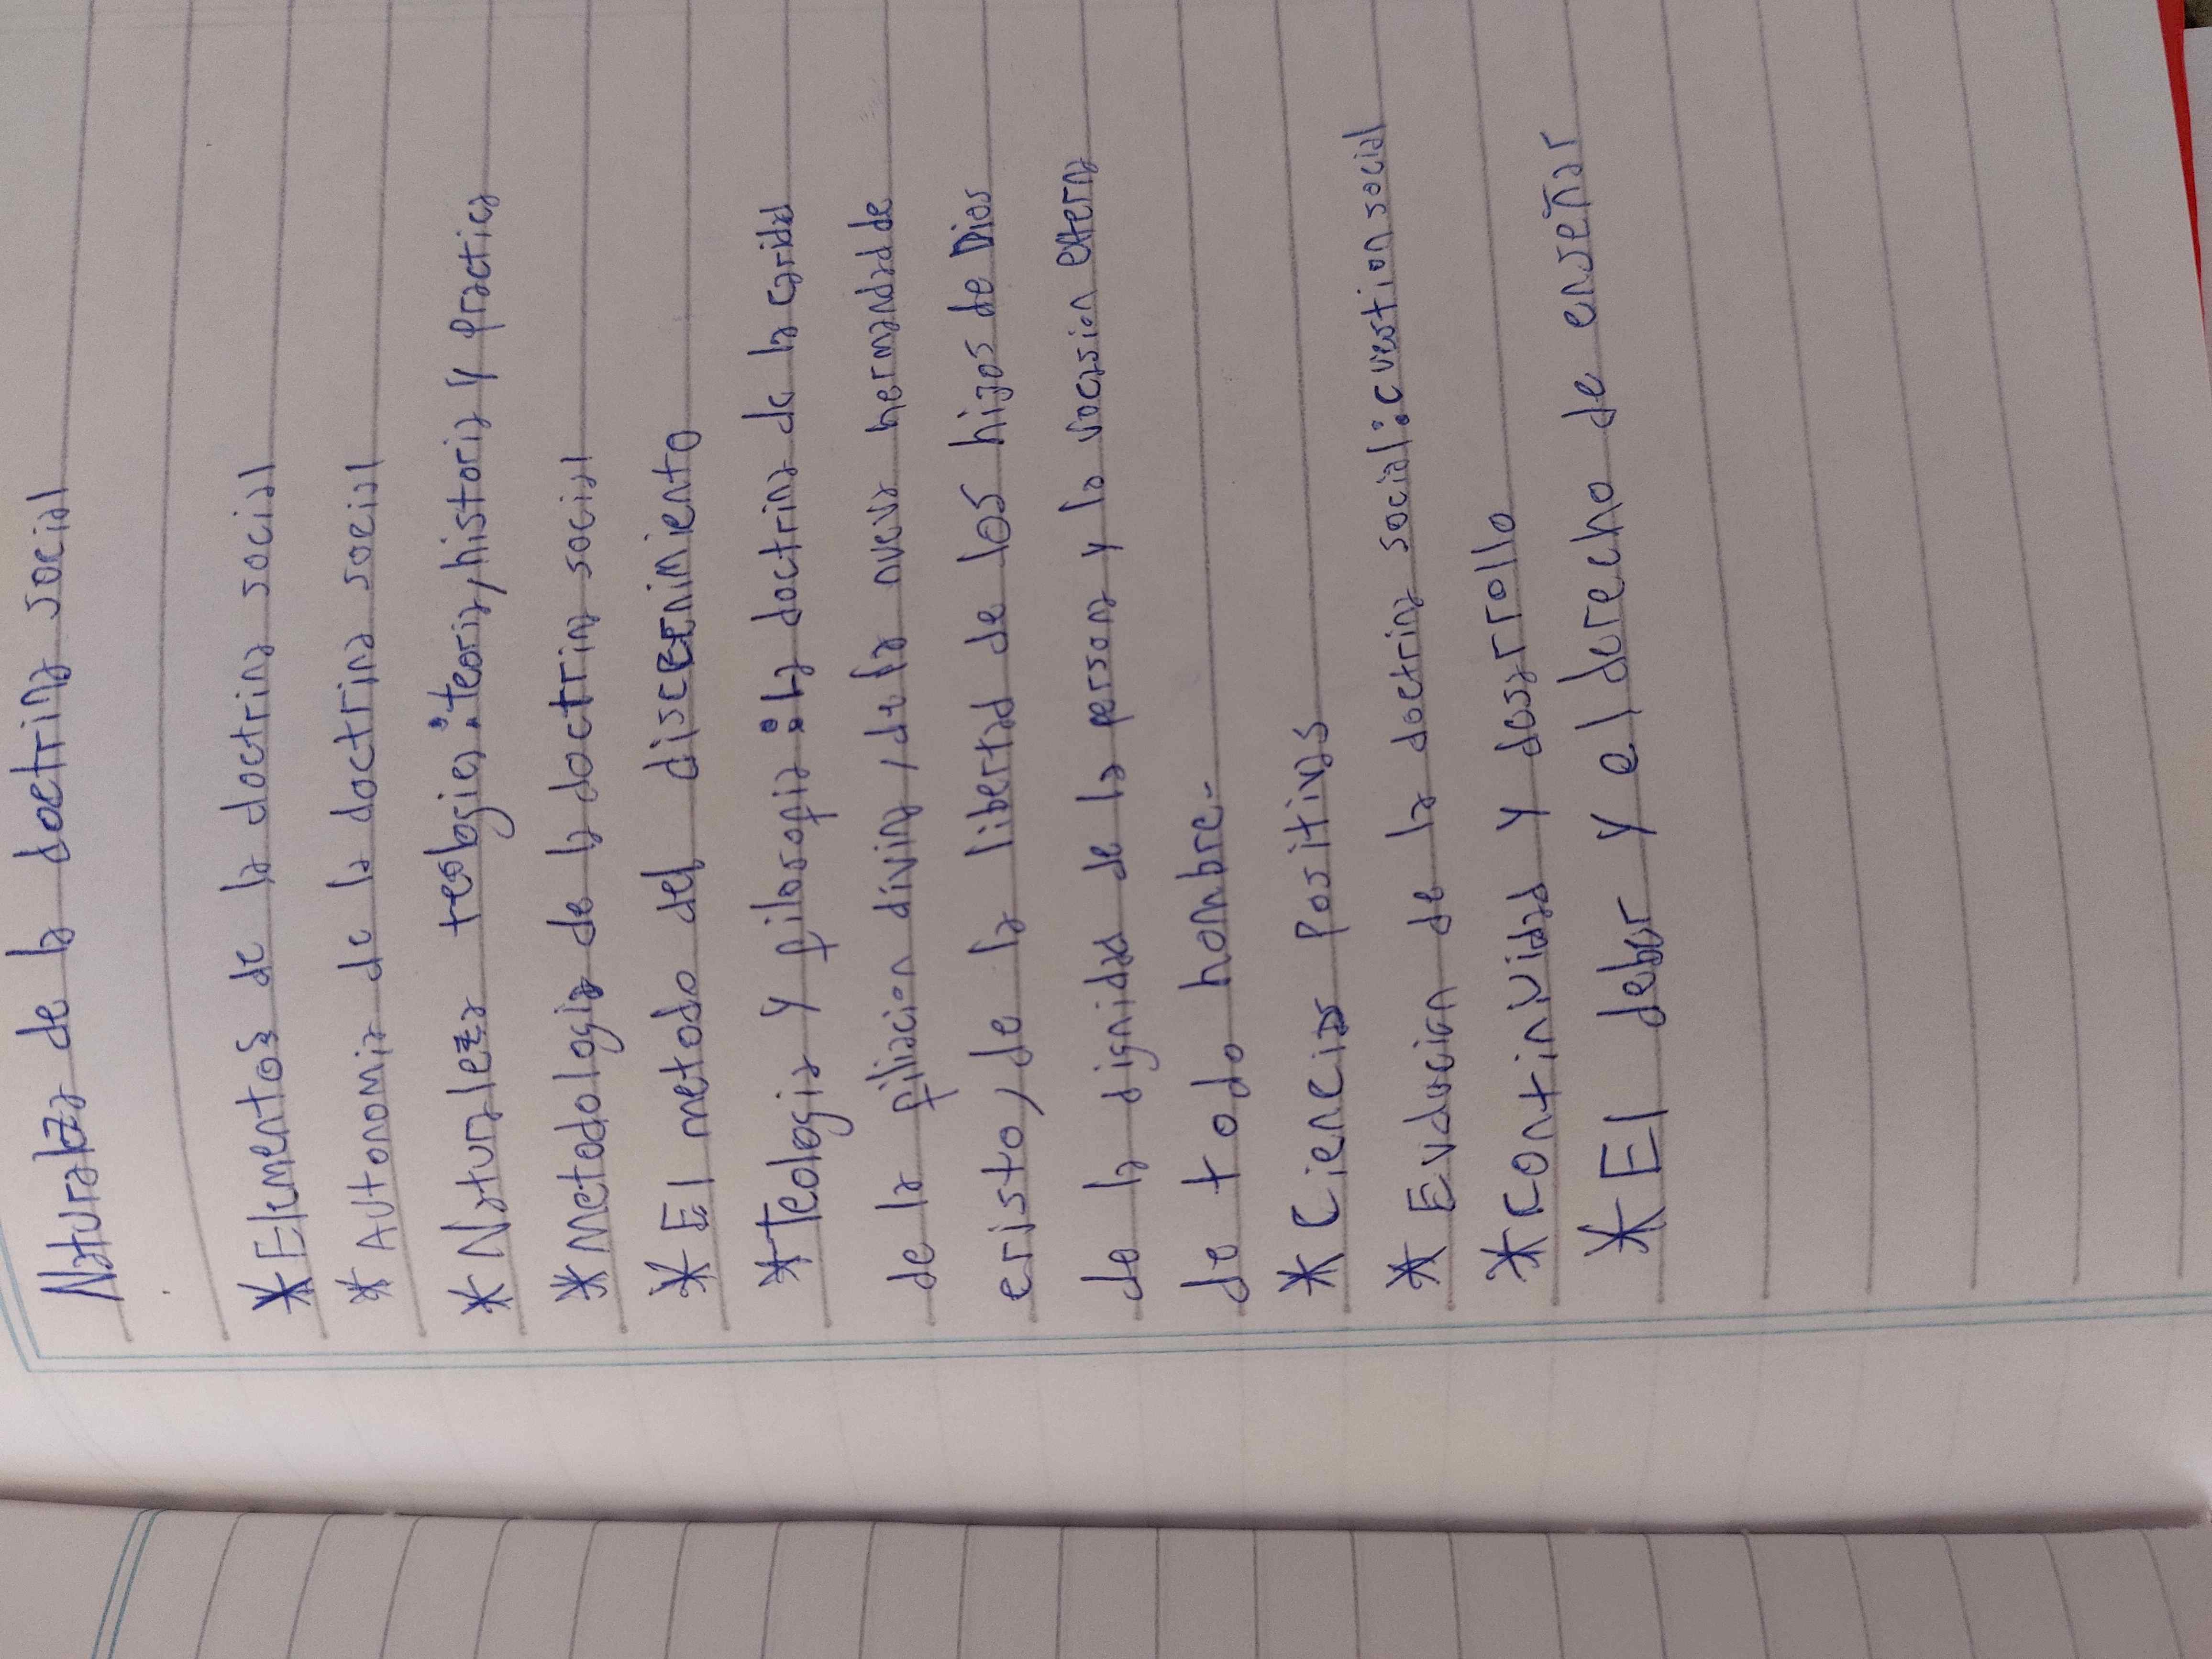 Naturaleza de la doctrina social
* Elementos de la doctrina social
* Autonomia de la doctrina social
* Naturaleza teologica: teoria, historia y practica
* Metodologia de la doctrina social
* El metodo del discernimiento
* Teologia y filosofia: la doctrina de la caridad
de la filiacion divina, de la nueva hermandad de
cristo, de la libertad de los hijos de Dios
de la dignidad de la persona y la vocasion eterna
de todo hombre.
* Ciencias Positivas
* Evolucion de la doctrina social: cuestion social
* Continuidad y desarrollo
* El deber y el derecho de enseñar